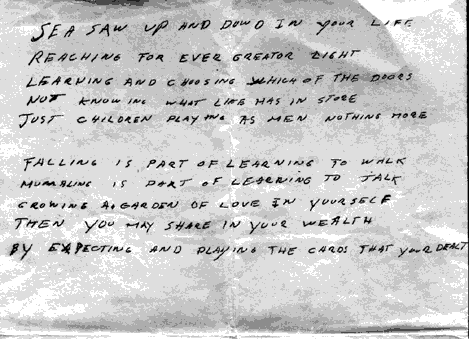 SEA SAW UP AND DOWD IN YOUR LIFE
REACHING FOR EVER GREATOR LIGHT
LEARNING AND CHOOSING WHICH OF THE DOORS
NOT KNOWING WHAT LIFE HAS IN STORE
JUST CHILDREN PLAYING AS MEN NOTHING MORE
FALLING IS PART OF LEARNING TO WALK
MUMALING IS PART OF LEARNING TO TALK
GROWING A GARDEN OF LOVE IN YOURSELF
THEN YOU MAY SHARE IN YOUR WEALTH
BY EXPECTING AND PLAYING THE CARDS THAT YOUR DEALT